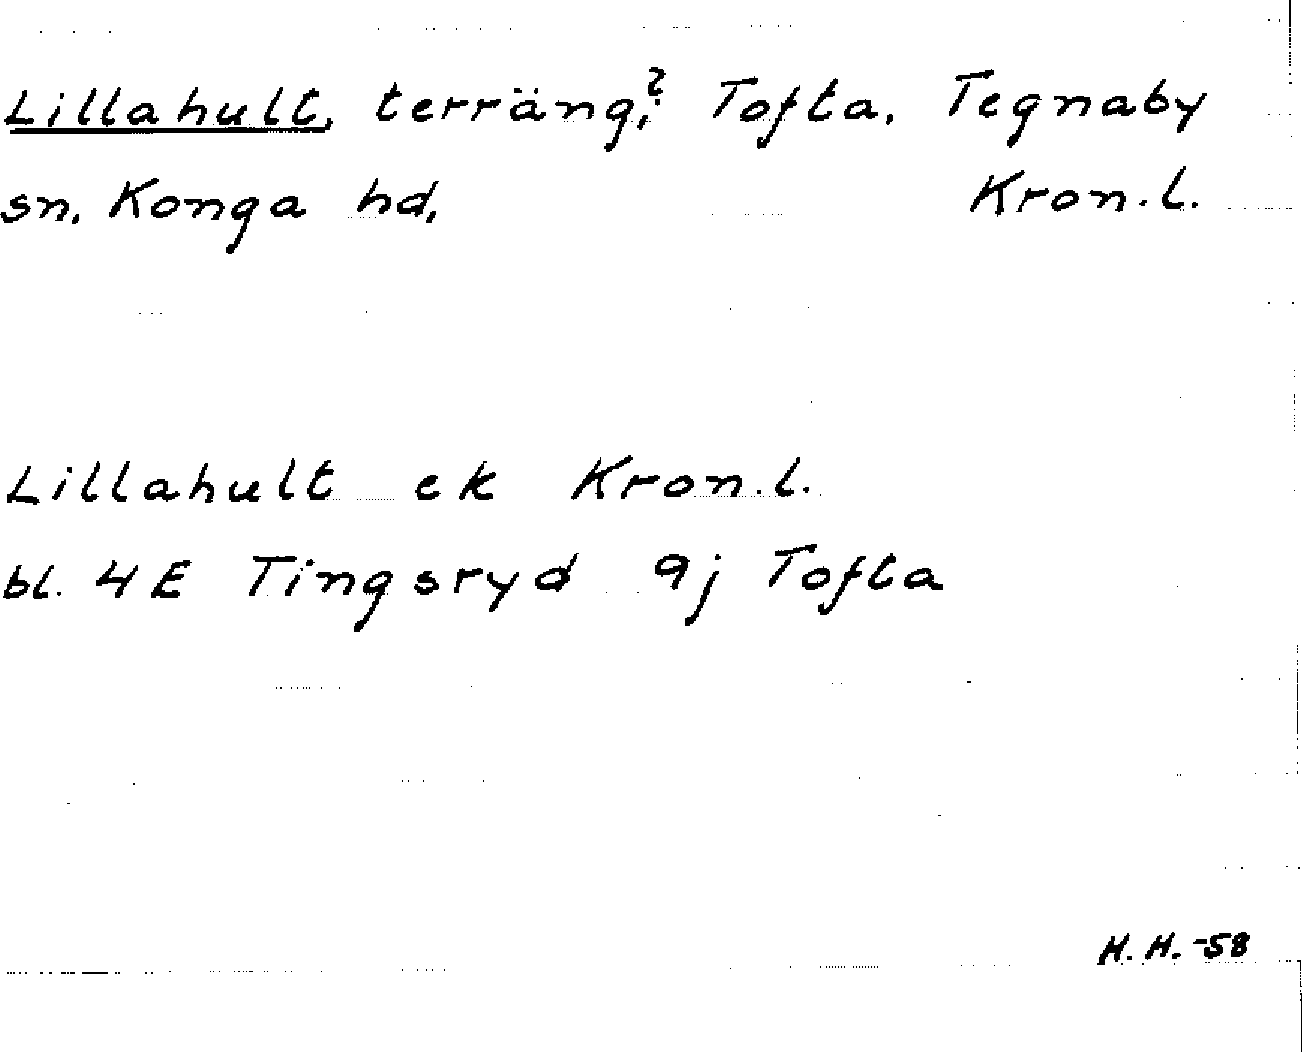 Lillahult, terräng;? Tofta, Tegnaby
sn. Konga hd, Kron.l.
Lillahult ek Kron.l.
bl. 4E Tingsryd 9j Tofta
H.H.-58